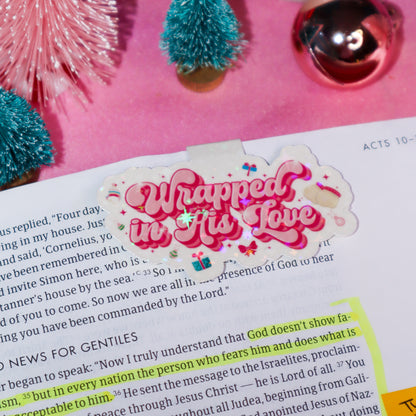 ACTS 10
Wrapped
in His Love
us replied, "Four day
ring in my house. Jus
and said, 'Cornelius, yo
have been remembered in
d invite Simon here, who is
tanner's house by the sea.' So I
d of you to come. So now we are all in the presence of God to hear
ing you have been commanded by the Lord."
NEWS FOR GENTILES
er began to speak: "Now I truly understand that God doesn't show fa-
ism, 35 but in every nation the person who fears him and does what is
acceptable to him. 36 He sent the message to the Israelites, proclaim-
of peace through Jesus Christ — he is Lord of all. 37 You
throughout all Judea, beginning from Gali-
anointed Jesus of Naz-